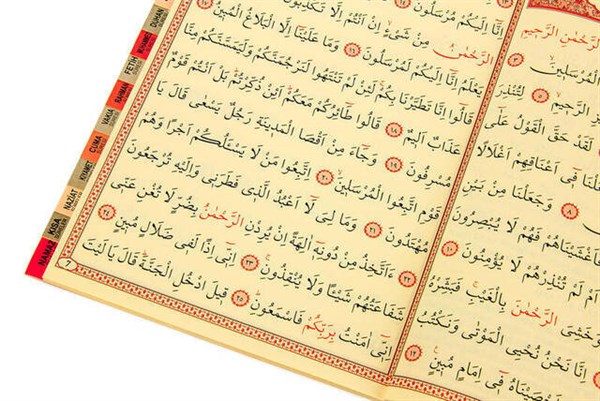 الرَّحْمٰنِ الرَّحِيمِ
الْمُرْسَلِينَ ٣
الرَّحِيمِ ٥ لِتُنْذِرَ
لَقَدْ حَقَّ الْقَوْلُ عَلٰى
فِى اَعْنَاقِهِمْ اَغْلَالًا
٨ وَجَعَلْنَا مِنْ بَيْنِ
فَاَغْشَيْنَاهُمْ فَهُمْ لَا يُبْصِرُونَ
اَمْ لَمْ تُنْذِرْهُمْ لَا يُؤْمِنُونَ ١٠
وَخَشِىَ الرَّحْمٰنَ بِالْغَيْبِ فَبَشِّرْهُ
اِنَّا نَحْنُ نُحْيِى الْمَوْتٰى وَنَكْتُبُ
اَحْصَيْنَاهُ فِى اِمَامٍ مُبِينٍ ١٢
اِنَّا اِلَيْكُمْ مُرْسَلُونَ
الرَّحْمٰنُ مِنْ شَىْءٍ اِنْ اَنْتُمْ اِلَّا تَكْذِبُونَ
يَعْلَمُ اِنَّا اِلَيْكُمْ لَمُرْسَلُونَ ١٦ وَمَا عَلَيْنَا اِلَّا الْبَلَاغُ الْمُبِينُ
قَالُوا اِنَّا تَطَيَّرْنَا بِكُمْ لَئِنْ لَمْ تَنْتَهُوا لَنَرْجُمَنَّكُمْ وَلَيَمَسَّنَّكُمْ مِنَّا
عَذَابٌ اَلِيمٌ ١٨ قَالُوا طَائِرُكُمْ مَعَكُمْ اَئِنْ ذُكِّرْتُمْ بَلْ اَنْتُمْ قَوْمٌ
مُسْرِفُونَ ١٩ وَجَاءَ مِنْ اَقْصَا الْمَدِينَةِ رَجُلٌ يَسْعٰى قَالَ يَا
قَوْمِ اتَّبِعُوا الْمُرْسَلِينَ ٢٠ اِتَّبِعُوا مَنْ لَا يَسْـَٔلُكُمْ اَجْرًا وَهُمْ
مُهْتَدُونَ ٢١ وَمَا لِىَ لَا اَعْبُدُ الَّذِى فَطَرَنِى وَاِلَيْهِ تُرْجَعُونَ
٢٢ ءَاَتَّخِذُ مِنْ دُونِهِ اٰلِهَةً اِنْ يُرِدْنِ الرَّحْمٰنُ بِضُرٍّ لَا تُغْنِ عَنِّى
شَفَاعَتُهُمْ شَيْـًٔا وَلَا يُنْقِذُونِ ٢٣ اِنِّى اِذًا لَفِى ضَلَالٍ مُبِينٍ ٢٤
اِنِّى اٰمَنْتُ بِرَبِّكُمْ فَاسْمَعُونِ ٢٥ قِيلَ ادْخُلِ الْجَنَّةَ قَالَ يَا لَيْتَ
7
DUHAN
MUHAMMED
FETİH
RAHMAN
VAKIA
CUMA
KIYAMET
NAZİAT
KISA
NAMAZ